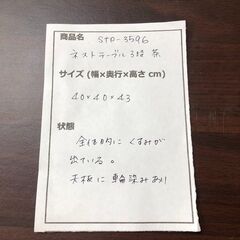 商品名 STD-3596
ネストテーブル3段 茶
サイズ (幅×奥行×高さ cm)
40×40×43
状態
全体的に くすみが
出ている。
天板に 輪染みあり